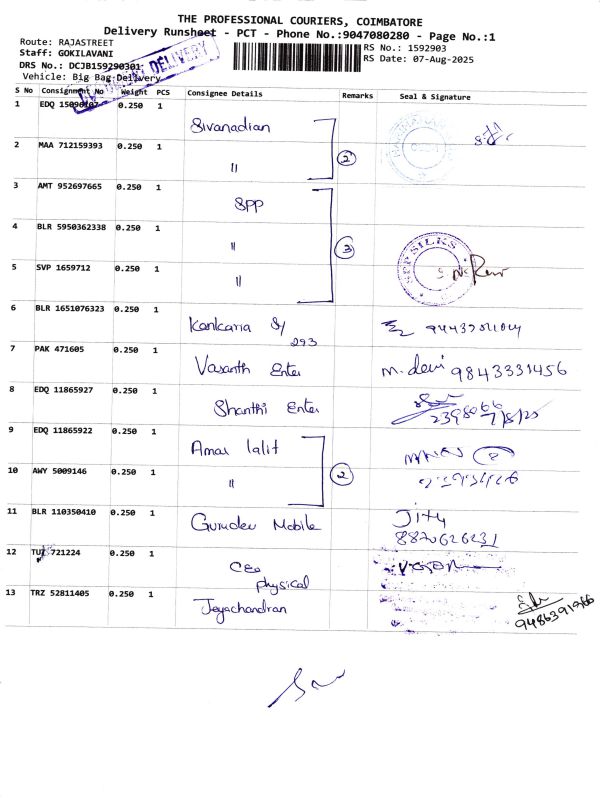 THE PROFESSIONAL COURIERS, COIMBATORE
Delivery Runsheet - PCT - Phone No.:9047080280 - Page No.:1
Route: RAJASTREET
RS No.: 1592903
Staff: GOKILAVANI
RS Date: 07-Aug-2025
DRS No.: DCJB159290301
DELIVERY
Vehicle: Big Bag Delivery
S No Consignment No Weight PCS Consignee Details Remarks Seal & Signature
1 EDQ 0.250 1 Sivanadian
2 MAA 712159393 0.250 1 " 2
3 AMT 952697665 0.250 1 SPP
4 BLR 5950362338 0.250 1 " 3
5 SVP 1659712 0.250 1 " SPP SILKS
6 BLR 1651076323 0.250 1 Kankaria S/
293
7 PAK 471605 0.250 1 Vasanth Enter m. devi 9843331456
8 EDQ 11865927 0.250 1 Shanthi Enter
9 EDQ 11865922 0.250 1 Amar lalit
10 AWY 5009146 0.250 1 " 2
11 BLR 110350410 0.250 1 Gurudev Mobile Jity
8870626231
12 721224 0.250 1 Ceo
physical
13 TRZ 52811405 0.250 1 Jeyachandran